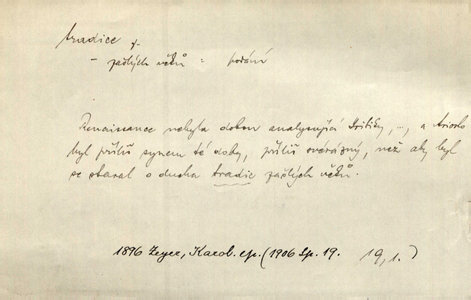 tradice f.
- zašlých věků = podání
Renaissance nebyla dobou analysující kritiky, …, a Ariosto
byl příliš synem té doby, příliš svérázný, než aby byl
se staral o ducha tradic zašlých věků.
1896 Zeyer, Karol. ep. (1906 Sp. 19. 19, 1.)